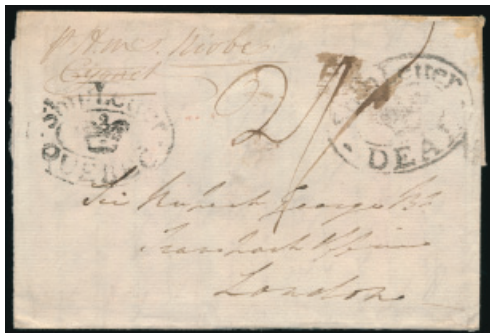 p. H.M.S. Niobe
Cygnet
2/
SHIP LETTER
QUEBEC
SHIP LETTER
DEAL
Sir Rupert George Bt
Transport Office
London